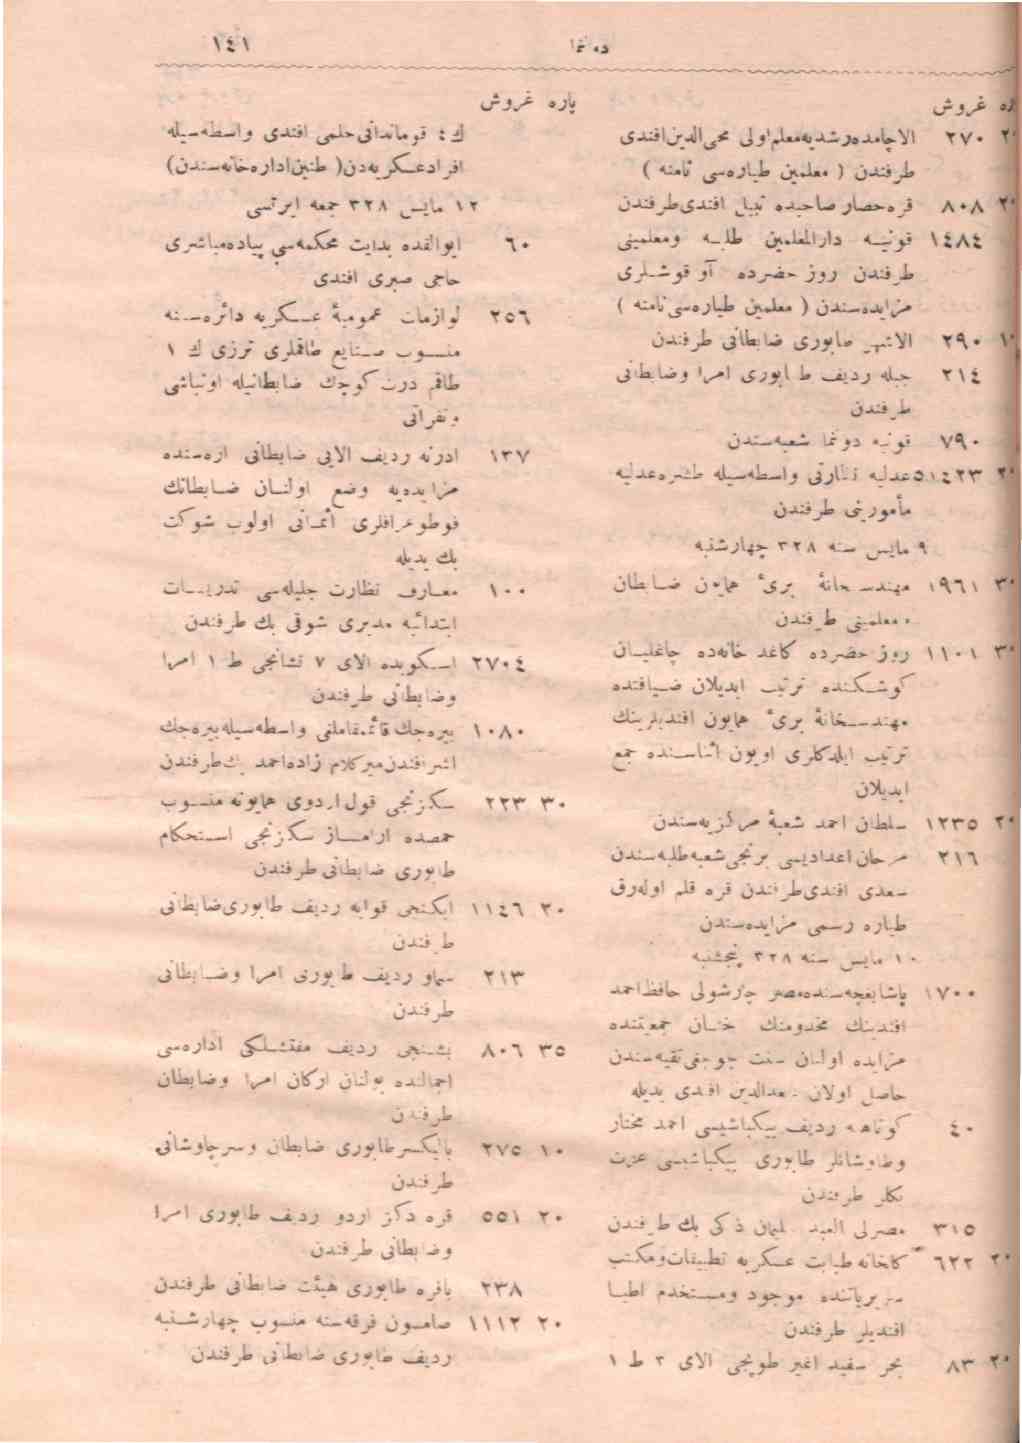 دونما ١٤١
پاره غروش
٢٧٠ الاچامده رشديه معلم اولى محى الدين افندى
طرفندن ( معلمين طياره سى نامنه )
٨٠٨ قره حصار صاحبده نبيل افندى طرفندن
١٤٨٤ قونيه دارالمعلمين طلبه ومعلمينى
طرفندن روز حضرده آو قوشلرى
مزايده سندن ( معلمين طياره سى نامنه )
٢٩٠ طابورى ضابطانى طرفندن
٢١٤ جبله رديف طابورى امرا وضابطانى
طرفندن
٧٩٠ قونيه دونما شعبه سندن
٥١٤٢٣ عدليه نظارتى واسطه سيله طشره عدليه
مأمورينى طرفندن
٩ مايس سنه ٣٢٨ چهارشنبه
٣٠ ١٩٦١ مهندسخانۀ برئ همايون ضابطان
ومعلمينى طرفندن
٣٠ ١١٠١ روز حضرده كاغد خانه ده چاغليان
كوشكنده ترتيب ايديلان ضيافتده
مهندسخانۀ برئ همايون افنديلرينك
ترتيب ايلدكلرى اويون اثناسنده جمع
ايديلان
٢٠ ١٢٣٥ سلطان احمد شعبۀ مركزيه سندن
٢١٦ مرجان اعداديسى برنجى شعبه طلبه سندن
سعدى افندى طرفندن قره قلم اوله رق
طياره رسمى مزايده سندن
١٠ مايس سنه ٣٢٨ پنجشنبه
١٧٠٠ پاشابغچه سنده مصر چارشولى حافظ احمد
افندينك مخدومنك ختان جمعيتنده
مزايده اولنان سنت چوجغى تقيه سندن
حاصل اولان سعدالدين افندى يديله
٤٠ كوتاهيه رديف بيكباشيسى احمد مختار
وطاوشانلر طابورى بيكباشيسى عزت
بكلر طرفندن
٣١٥ مصرلى العبد سليمان ذكى بك طرفندن
٢٠ ٦٢٢ كلخانه طبابت عسكريه تطبيقات ومكتب
سريرياتنده موجود ومستخدم اطبا
افنديلر طرفندن
٢٠ ٨٣ بحر سفيد اغير طوپجى الاى ٣ ط ١
پاره غروش
ك ٤ قوماندانى حلمى افندى واسطه سيله
افراد عسكريه دن ( طنين اداره خانه سندن )
١٢ مايس ٣٢٨ جمعه ايرتسى
٦٠ ابوالفده بدايت محكمه سي پياده مباشرى
حاجى صبرى افندى
٢٥٦ لوازمات عموميۀ عسكريه دائره سنه
منسوب صنايع طاقملرى ترزى ك ١
طاقم درت كوچك ضابطانيله اونباشى
ونفراتى
١٣٧ ادرنه رديف الايى ضابطانى اره سنده
مزايده يه وضع اولنان ضابطانك
فوطوغرافلرى اثمانى اولوب شوكت
بك يديله
١٠٠ معارف نظارت جليله سى تدريسات
ابتدائيه مديرى شوقى بك طرفندن
٢٧٠٤ اسكوبده الاى ٧ نشانجى ط ١ امرا
وضابطانى طرفندن
١٠٨٠ بيره جك قائممقاملغى واسطه سيله بيره جك
اشرافندن ميركلام زاده احمد بك طرفندن
٣٠ ٢٢٣ سكزنجى قول اردوى همايونه منسوب
حمصده سكزنجى استحكام
طابورى ضابطانى طرفندن
٣٠ ١١٤٦ ايكنجى رديف طابورى ضابطانى
طرفندن
٢١٣ سماو رديف طابورى امرا وضابطانى
طرفندن
٣٥ ٨٠٦ بشنجى رديف مفتشلكى اداره سى
اجمالنده بولنان اركان امرا وضابطان
طرفندن
١٠ ٢٧٥ باليكسر طابورى ضابطان وسرچاوشانى
طرفندن
٢٠ ٥٥١ قره دكز اردو رديف طابورى امرا
وضابطانى طرفندن
٢٣٨ بافره طابورى هيئت ضابطانى طرفندن
٢٠ ١١١٢ صامسون فرقه سنه منسوب چهارشنبه
رديف طابورى ضابطانى طرفندن